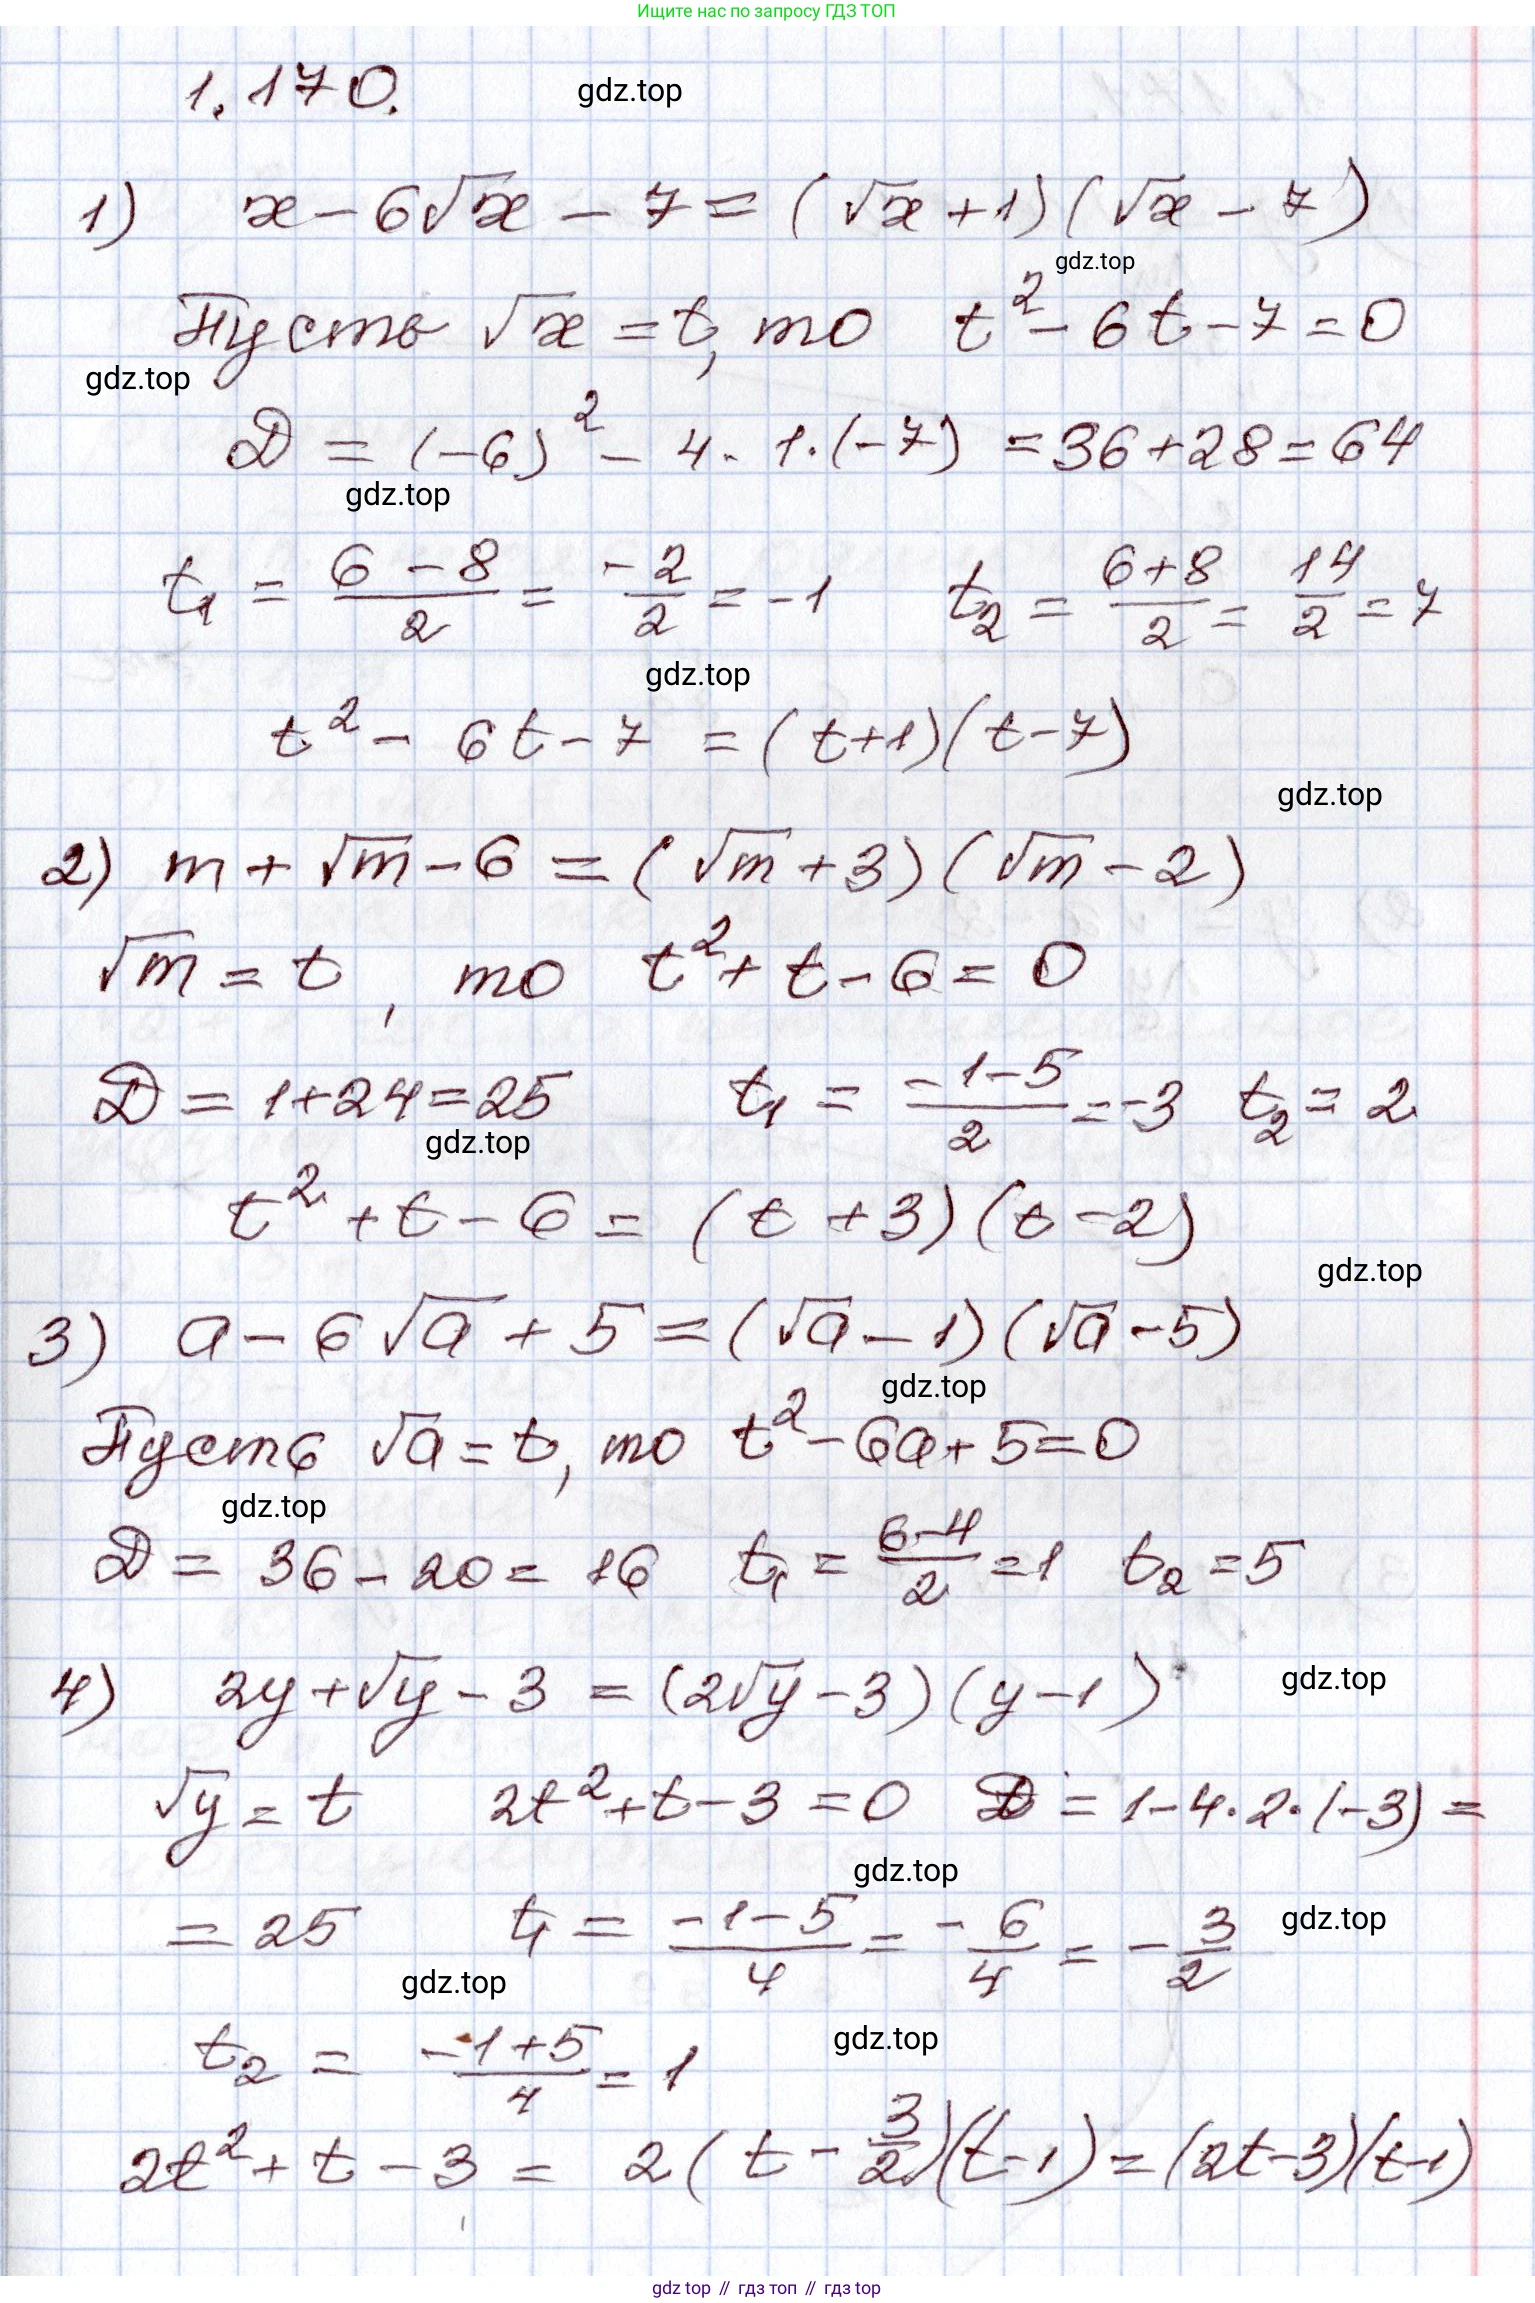 Ищите нас по запросу ГДЗ ТОП
1.170.
gdz.top
1) x - 6√x - 7 = (√x + 1)(√x - 7)
gdz.top
Пусть √x = t, то t² - 6t - 7 = 0
gdz.top
D = (-6)² - 4 · 1 · (-7) = 36 + 28 = 64
gdz.top
t₁ = (6 - 8)/2 = -2/2 = -1 t₂ = (6 + 8)/2 = 14/2 = 7
gdz.top
t² - 6t - 7 = (t + 1)(t - 7)
gdz.top
2) m + √m - 6 = (√m + 3)(√m - 2)
√m = t, то t² + t - 6 = 0
D = 1 + 24 = 25 t₁ = (-1 - 5)/2 = -3 t₂ = 2
gdz.top
t² + t - 6 = (t + 3)(t - 2)
gdz.top
3) a - 6√a + 5 = (√a - 1)(√a - 5)
gdz.top
Пусть √a = t, то t² - 6a + 5 = 0
gdz.top
D = 36 - 20 = 16 t₁ = (6 - 4)/2 = 1 t₂ = 5
gdz.top
4) 2y + √y - 3 = (2√y - 3)(y - 1)
√y = t 2t² + t - 3 = 0 D = 1 - 4 · 2 · (-3) =
gdz.top
= 25 t₁ = (-1 - 5)/4 = -6/4 = -3/2
gdz.top
gdz.top
t₂ = (-1 + 5)/4 = 1
gdz.top
2t² + t - 3 = 2(t - 3/2)(t - 1) = (2t - 3)(t - 1)
gdz top // гдз топ // гдз top